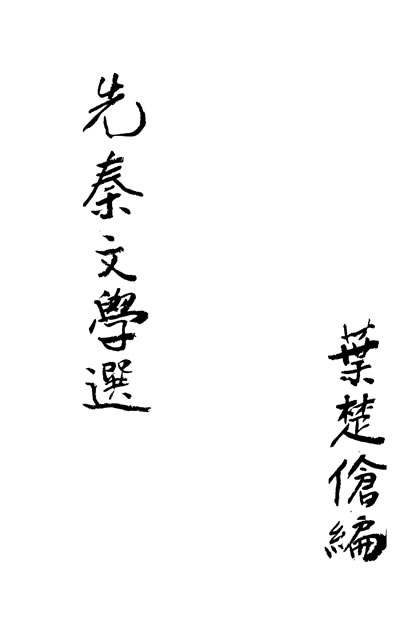 葉楚傖編
先秦文學選